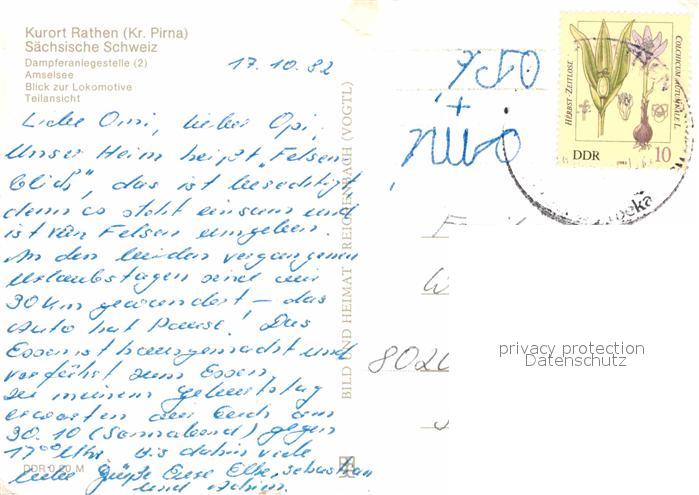 Kurort Rathen (Kr. Pirna)
Sächsische Schweiz
Dampferanlegestelle (2)
Amselsee
Blick zur Lokomotive
Teilansicht
17.10.82
Liebe Omi, lieber Opi,
Unser Heim heißt „Felsen
blick", das ist berechtigt
denn es steht einsam und
ist von Felsen umgeben.
An den beiden vergangenen
Urlaubstagen sind wir
30 km gewandert – das
Auto hat Pause! Das
Essen ist hausgemacht und
verführt zum Essen.
Zu meinem Geburtstag
erwarten wir Euch am
30.10 (Sonnabend) gegen
17⁰⁰ Uhr. Bis dahin viele
liebe Grüße Eure Elke, Sebastian
und
DDR 0,20 M
BILD UND HEIMAT REICHENBACH (VOGTL)
+
HERBST-ZEITLOSE
COLCHICUM AUTUMNALE L.
DDR 10
1982
802
privacy protection
Datenschutz